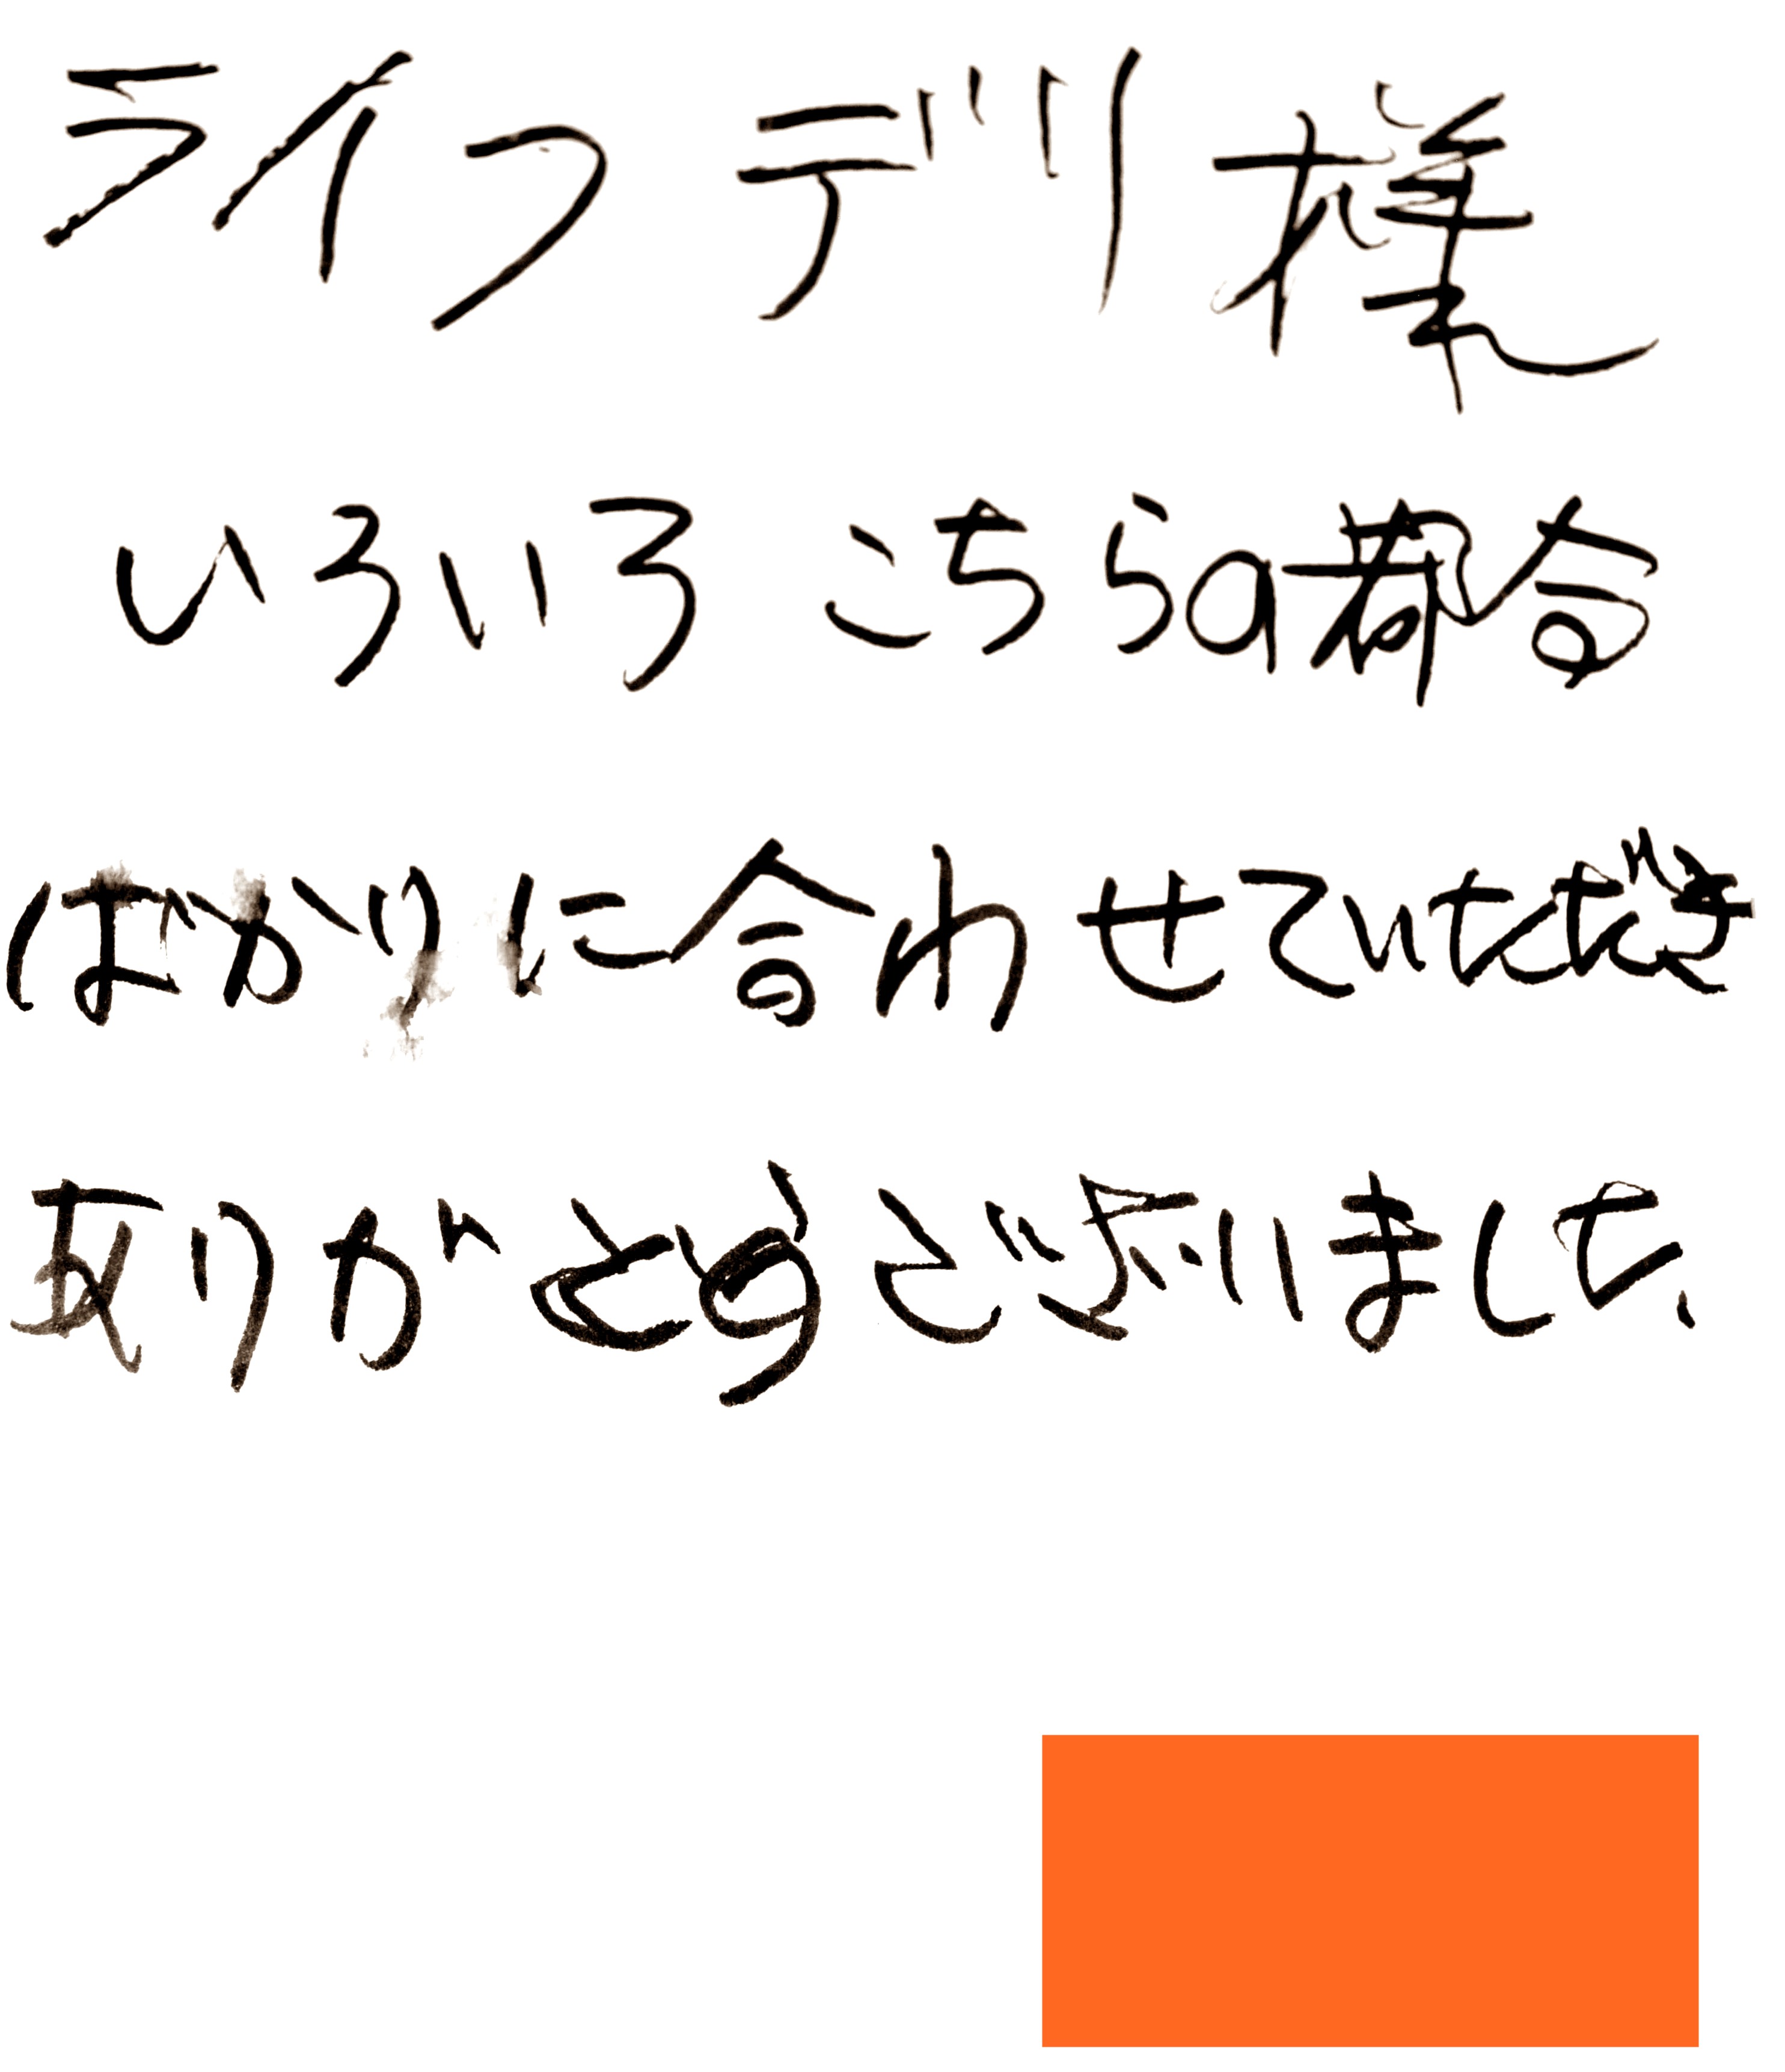 ライフデリ様
いろいろこちらの都合
ばかりに合わせていただき
ありがとうございました、